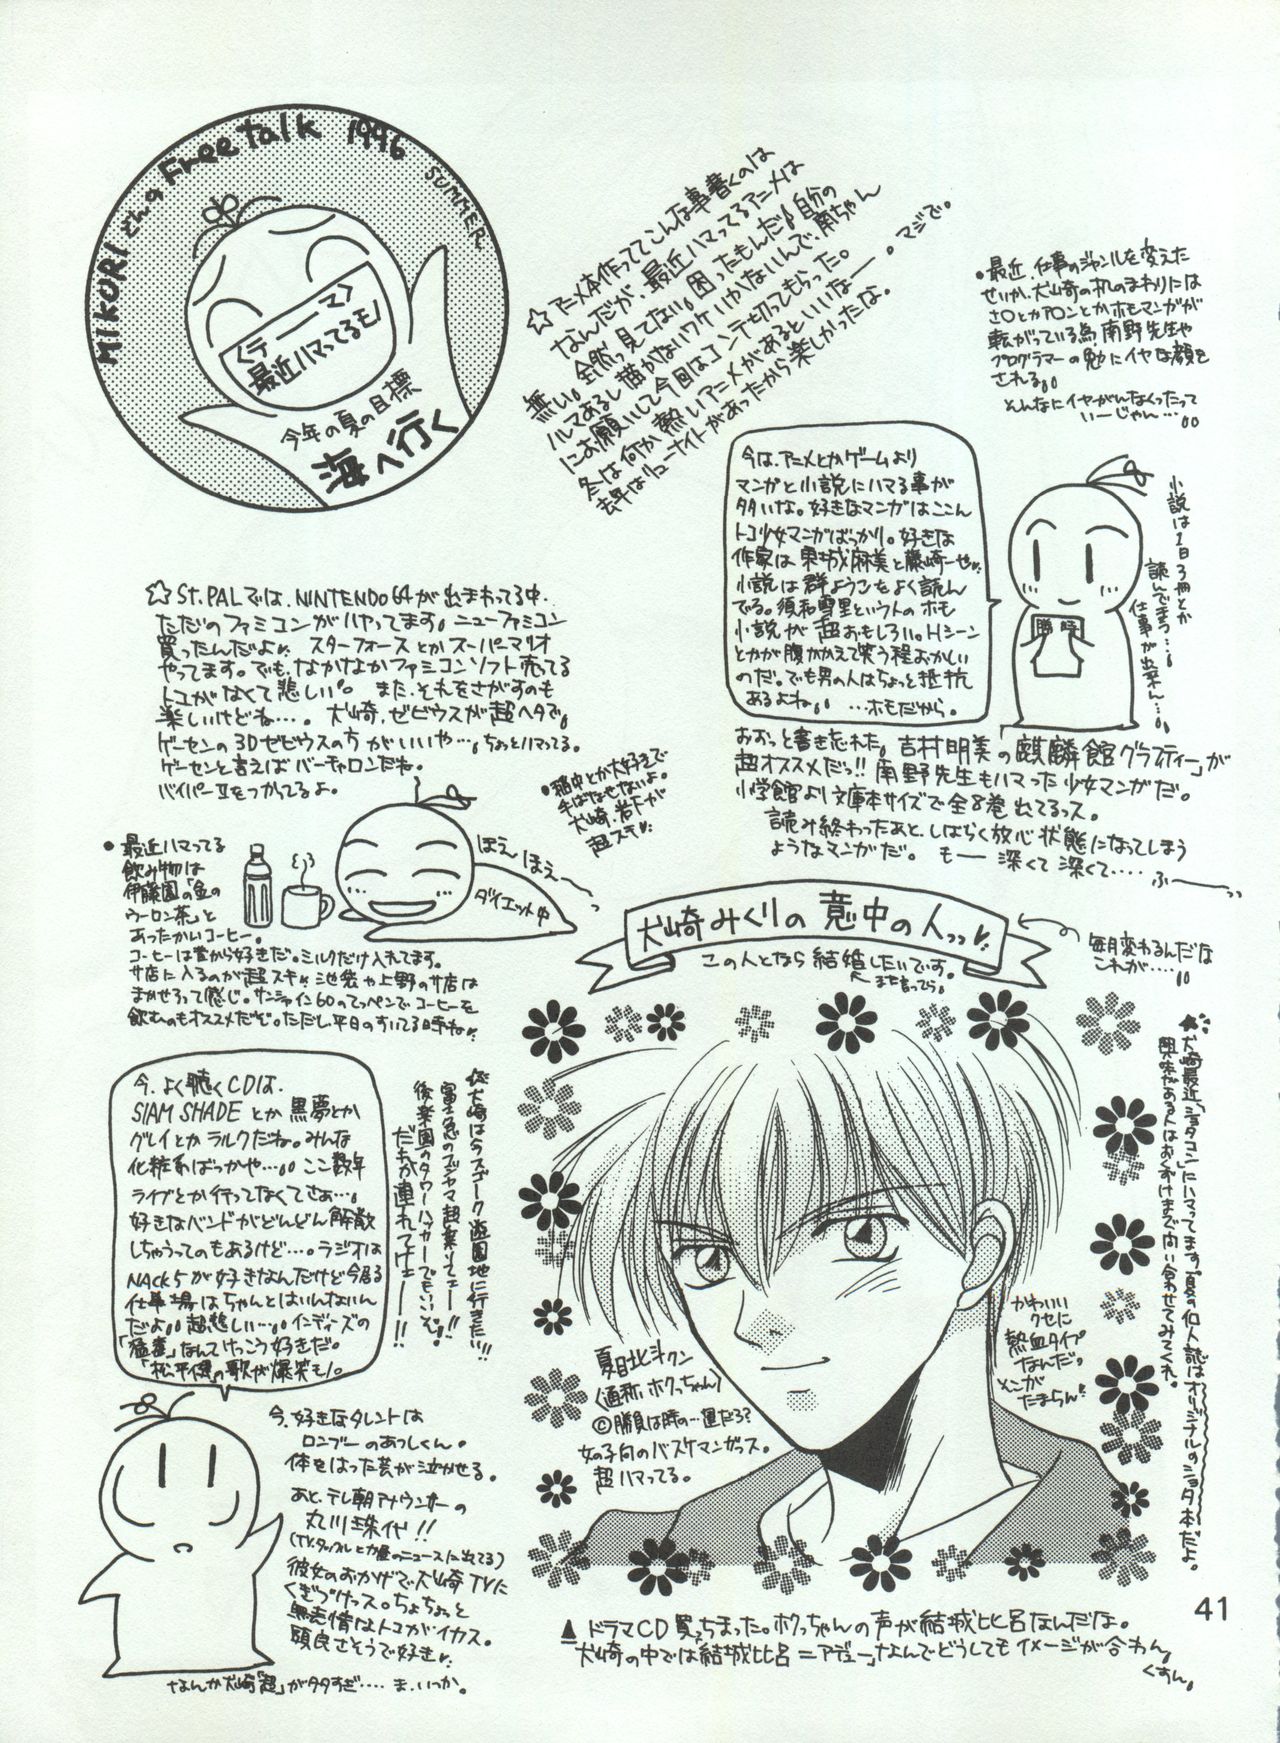 MIKURIさんのFree talk 1996 SUMMER
<テーマ>
最近ハマってるモノ
今年の夏の目標
海へ行く
☆アニメ本作っててこんな事書くのは
なんだが、最近ハマってるアニメは
無い。全然っ見てない。困ったもんだ。自分の
ノルマあるし描かないワケいかないんで、南ちゃん
にお願いして今回はコンテ切ってもらった。
冬は何か熱いアニメがあるといいなー。マジで。
去年はリューナイトがあったから楽しかったな。
●最近、仕事のジャンルを変えた
せいか、犬崎の机のまわりには
さ○とかア○ンとかホモマンガが
転がっている為、南野先生や
プログラマーの勉にイヤな顔を
される。
そんなにイヤがんなくったって
いーじゃん…。
今は、アニメとかゲームより
マンガと小説にハマる事が
多いな。好きなマンガはここん
トコ少女マンガばっかり。好きな
作家は東城麻美と藤崎一也
小説は群ようこをよく読ん
でる。須和雪里という人のホモ
小説が超おもしろい。Hシーン
とかが腹かかえて笑う程おかしい
のだ。でも男の人はちょっと抵抗
あるよね。…ホモだから。
小説は1日3冊とか
読んでまう…。
仕事が出来ん…。
おおっと書き忘れた。吉村明美の「麒麟館グラフィティー」が
超オススメだっ!!南野先生もハマった少女マンガだ。
小学館より文庫本サイズで全8巻出てるっス。
読み終わったあと、しばらく放心状態になってしまう
ようなマンガだ。もー深くて深くて…。ふー
☆St.PALでは、NINTENDO64が出まわってる中、
ただのファミコンがハヤってます。ニューファミコン
買ったんだよ。スターフォースとかスーパーマリオ
やってます。でも、なかなかファミコンソフト売ってる
トコがなくて悲しい。また、それをさがすのも
楽しいけどね…。犬崎、ゼビウスが超ヘタで。
ゲーセンの3Dゼビウスの方がいいや…。ちょっとハマってる。
ゲーセンと言えばバーチャロンだね。
バイパーⅡをつかってるよ。
●稲中とか大好きで
手ばなせないよ。
犬崎、岩下が
超スキ
●最近ハマってる
飲み物は
伊藤園の「金の
ウーロン茶」と
あったかいコーヒー。
コーヒーは昔から好きだ。ミルクだけ入れてます。
サ店に入るのが超スキ。池袋や上野のサ店は
まかせろって感じ。サンシャイン60のてっぺんでコーヒーを
飲むのもオススメだぞ。ただし、平日のすいてる時ね。
ほえーほえー
ダイエット中
犬崎みくりの意中の人っっ
この人となら結婚したいです。
まだ言ってら。
毎月変わるんだな
これが…。
★犬崎最近「ショタコン」にハマってます。夏の個人誌はオリジナルのショタ本だよ。
興味がある人はおくづけまで問い合わせてみてくれ。
今、よく聴くCDは、
SIAM SHADEとか黒夢とか
グレイとかラルクだね。みんな
化粧系ばっかや…。ここ数年
ライブとか行ってなくてさぁ…。
好きなバンドがどんどん解散
しちゃうってのもあるけど…。ラジオは
NACK5が好きなんだけど今居る
仕事場はちゃんとはいんないん
だよ。超悲しい…。インディーズの
なんてけっこう好きだ。
「松平健」の歌が爆笑モノ。
☆犬崎は今スゴーク遊園地に行きたい!!
富士急のフジヤマ超乗りてェー!!
後楽園のタワーハッカーでもいいぞ。
だれか連れてけェー!!
夏目北斗クン
(通称ホクっちゃん)
©勝負は時の運だろ?
女の子向のバスケマンガっス。
超ハマってる。
かわいい
クセに
熱血タイプ
なんだ。
そこが
たまらん
今、好きなタレントは
ロンブーのあつしくん。
体をはった芸が泣かせる。
あと、テレ朝アナウンサーの
丸川珠代!!
(TVタックルとか昼のニュースに出てる)
彼女のおかげで犬崎TVに
くぎづけっス。ちょちょっと
無表情なトコがイカス。
頭良さそうで好き
なんか犬崎「超」が多すぎ…。ま、いっか。
▲ドラマCD買っちまった。ホクっちゃんの声が結城比呂なんだな。
犬崎の中では結城比呂=「アデュー」なんでどうしてもイメージが合わん。
くすん。
41